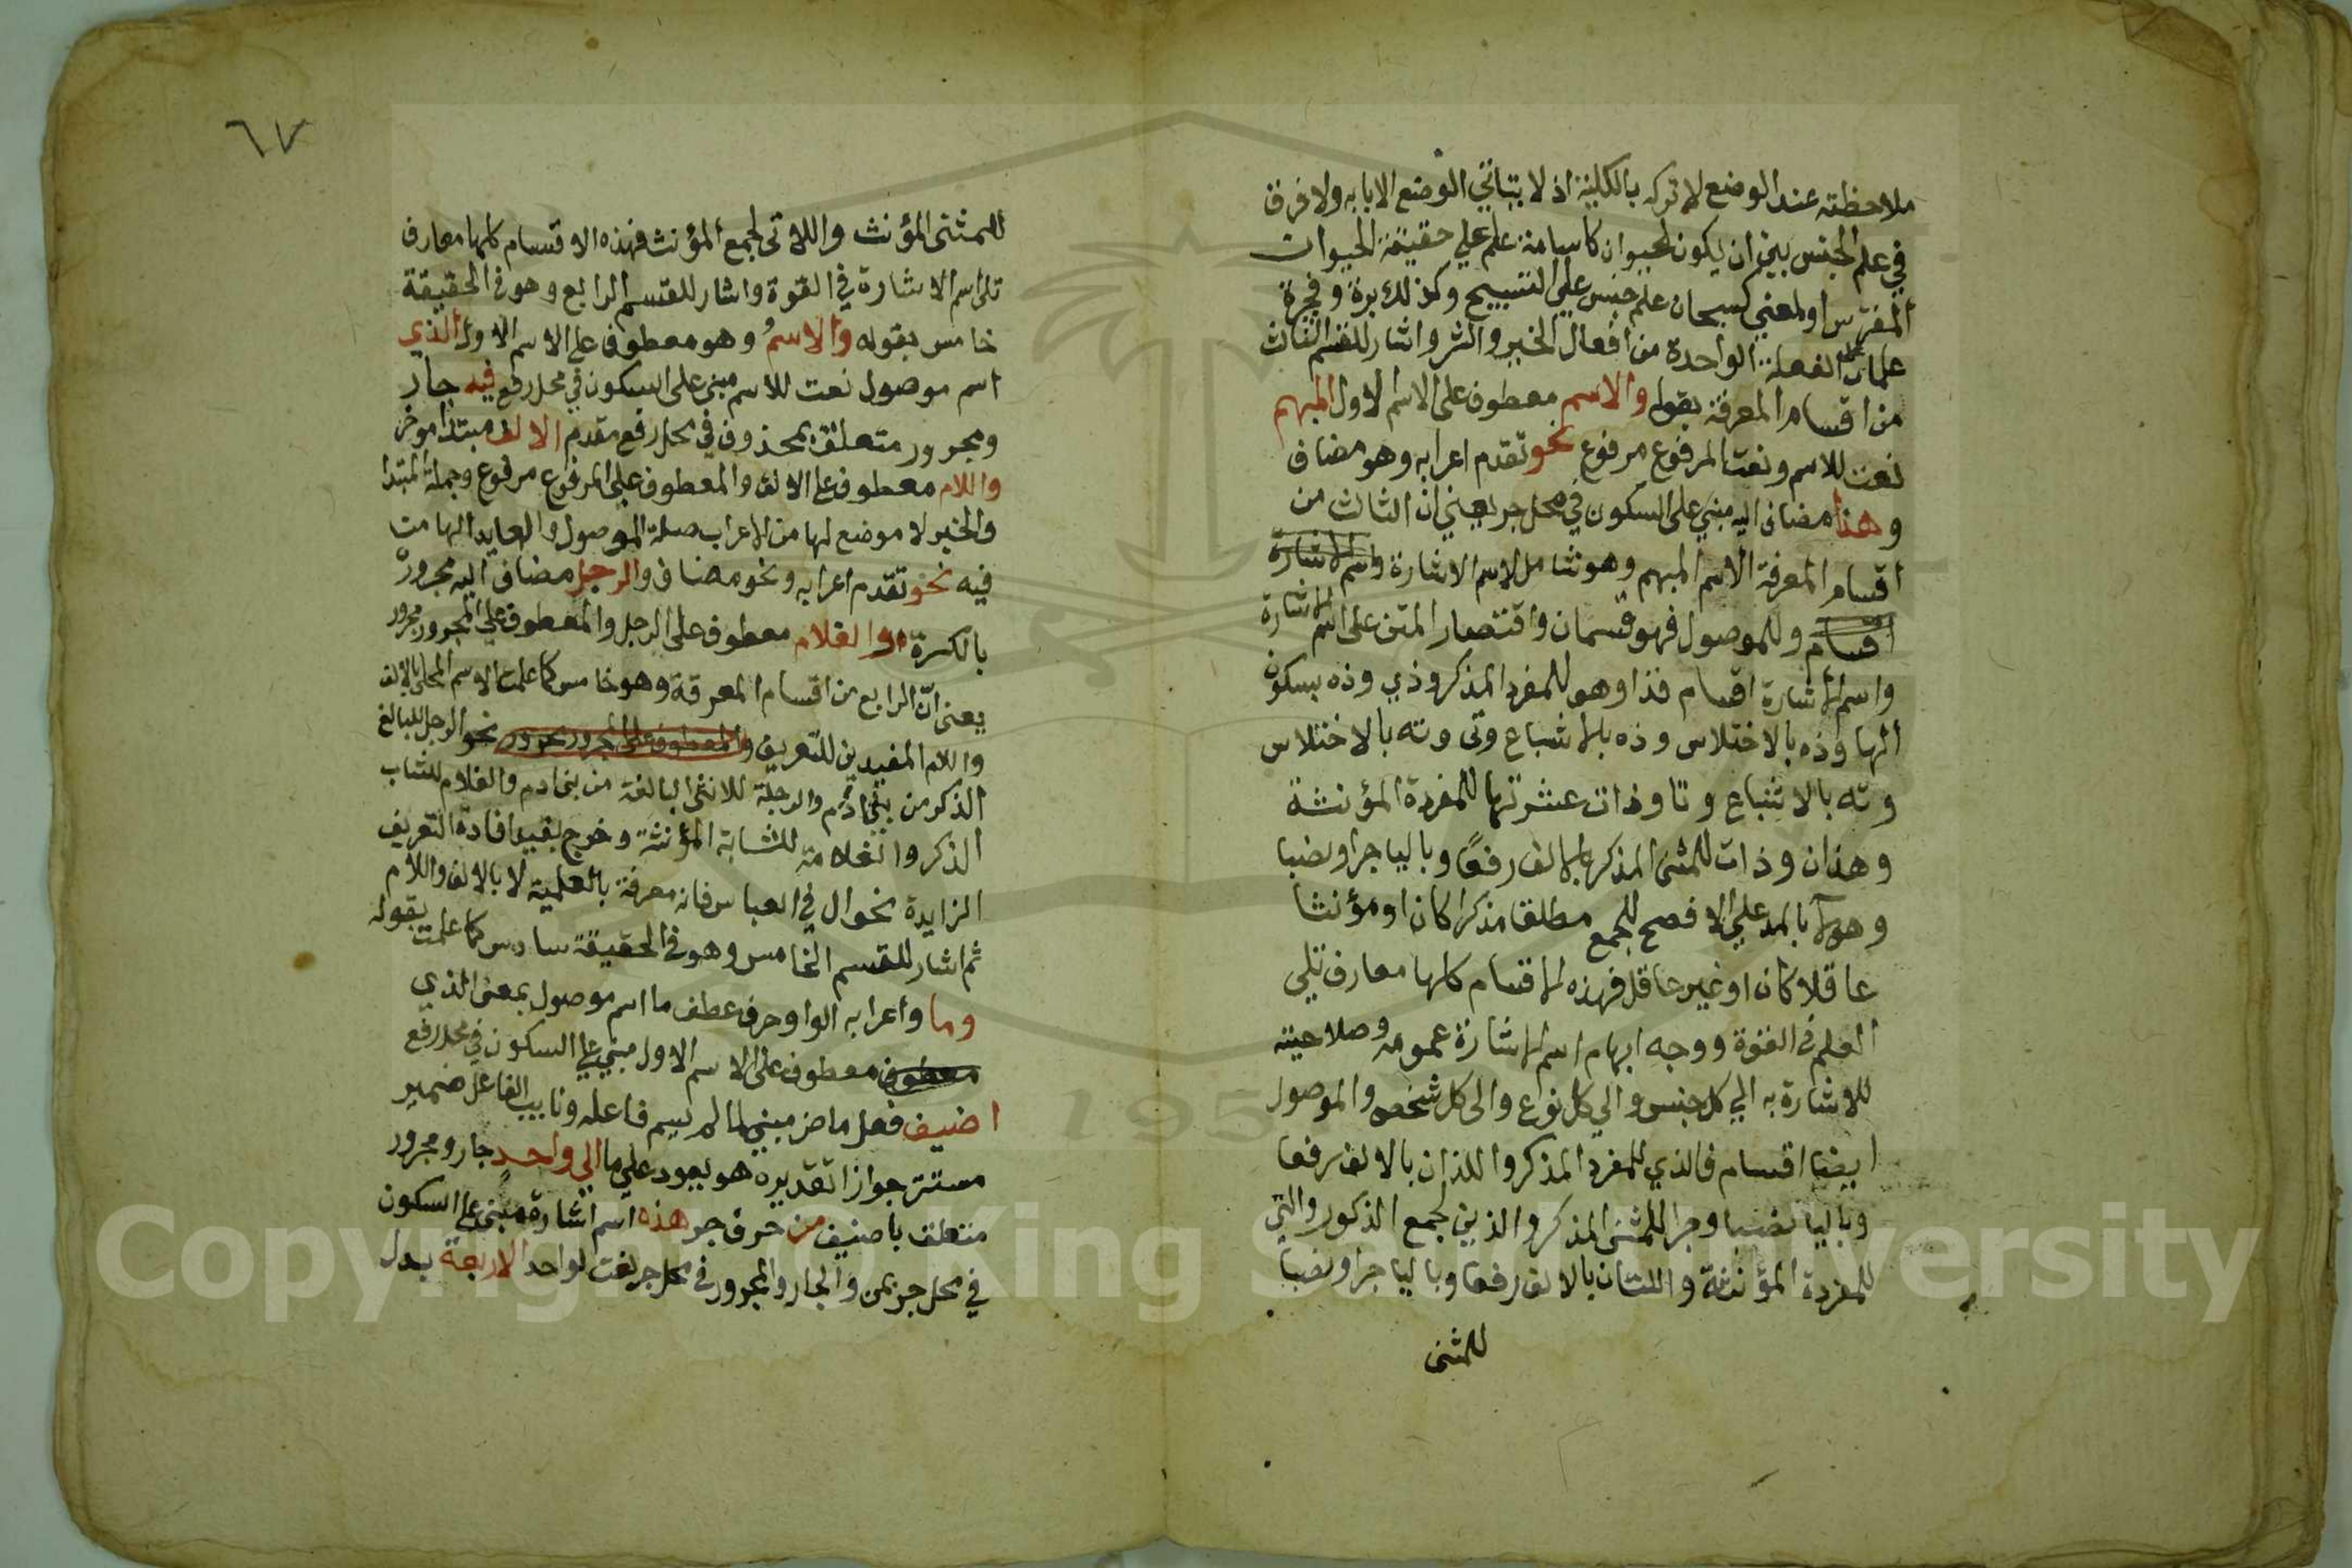 ملاحظته عند الوضع لا تركه بالكلية اذ لا يتاتي الوضع الا بابه ولا فرق
في علم الجنس بين ان يكون لحيوان كاسامة علم علي حقيقة الحيوان
المفترس او لمعني كسبحان علم جنس علي التسبيح وكذلك برة وفجرة
علمان علي الفعلة الواحدة من افعال الخير والشر واشار للقسم الثالث
من اقسام المعرفة بقوله والاسم معطوف على الاسم الاول المبهم
نعت للاسم ونعت المرفوع مرفوع نحو تقدم اعرابه وهو مضاف
وهذا مضاف اليه مبني على السكون في محل جر يعني ان الثالث من
اقسام المعرفة الاسم المبهم وهو شامل لاسم الاشارة واسم الاشارة
اقسام وللموصول فهو قسمان واقتصار المتن على اسم الاشارة
واسم الاشارة اقسام فذا وهو للمفرد المذكر وذي وذه بسكون
الها وذه بالاختلاس وذه بالاشباع وتى وته بالاختلاس
وته بالاشباع وتا وذات عشرتها للمفردة المؤنثة
وهذان وذات للمثنى المذكر بالالف رفعًا وباليا جرا ونصبا
وهولآ بالمد علي الافصح للجمع مطلقا مذكرا كان او مؤنثا
عاقلا كان او غير عاقل فهذه الاقسام كلها معارف تلي
العلم في القوة ووجه ابهام اسم الاشارة عمومه وصلاحيته
للاشارة به الي كل جنس والي كل نوع والى كل شخص والموصول
ايضا اقسام فالذي للمفرد المذكر واللذان بالالف رفعا
وباليا نصبا وجرا للمثنى المذكر والذين لجمع الذكور والتي
للمفردة المؤنثة واللتان بالالف رفعا وباليا جرا ونصبا
للمثنى
٦٧
للمثنى المؤنث واللاتى لجمع المؤنث فهذه الاقسام كلها معارف
تلى اسم الاشارة في القوة واشار للقسم الرابع وهو في الحقيقة
خامس بقوله والاسمُ وهو معطوف على الاسم الاول الذي
اسم موصول نعت للاسم مبنى على السكون في محل رفع فيه جار
ومجرور متعلق بمحذوف في محل رفع مقدم الالف مبتدا موخر
واللام معطوف على الالف والمعطوف علي المرفوع مرفوع وجملة المبتدا
والخبر لا موضع لها من الاعراب صلة الموصول والعايد الها من
فيه نحو تقدم اعرابه ونحو مضاف والرجل مضاف اليه مجرور
بالكسرة والغلام معطوف على الرجل والمعطوف علي المجرور مجرور
يعنى انّ الرابع من اقسام المعرفة وهو خامس كما علمت الاسم المحلى بالالف
واللام المفيدين للتعريف والمعطوف على المجرور مجرور نحو الرجل للبالغ
الذكر من بني ادم والرجلة للانثى البالغة من بني ادم والغلام للشاب
الذكر والغلامة للشابة المؤنثة وخرج بقيد افادة التعريف
الزايدة نحو ال في العباس فانه معرفة بالعلمية لا بالالف واللام
ثم اشار للقسم الخامس وهو في الحقيقة سادس كما علمت بقوله
وما واعرابه الواو حرف عطف ما اسم موصول بمعنى الذي
معطوف معطوف على الاسم الاول مبني على السكون في محل رفع
اضيف فعل ماض مبني لما لم يسم فاعله ونايب الفاعل ضمير
مستتر جوازا تقديره هو يعود علي ما الي واحدٍ جار ومجرور
متعلق باضيف من حرف جر هذه اسم اشارة مبنى على السكون
في محل جر بمن والجار والمجرور في محل جر نعت لواحد الاربعة بدل
Copyright © King Saud University
195